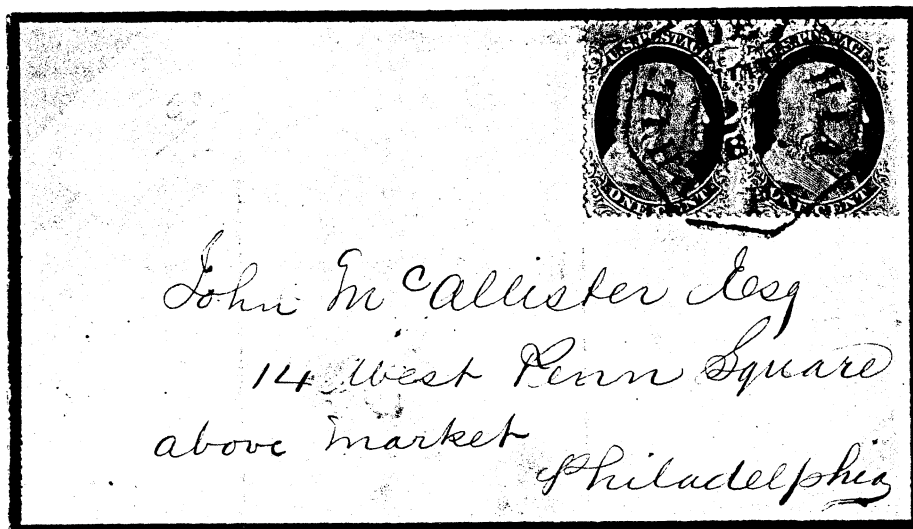 U.S. POSTAGE U.S. POSTAGE
ONE CENT ONE CENT
John McAllister Esq
14 West Penn Square
above Market
Philadelphia